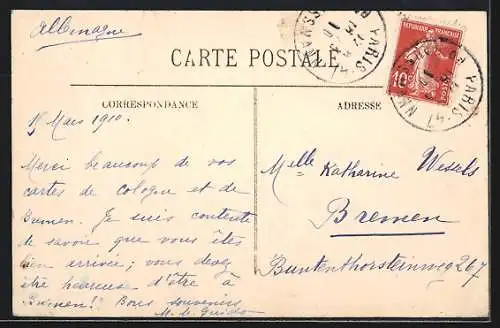 Allemagne
CARTE POSTALE
CORRESPONDANCE
ADRESSE
REPUBLIQUE FRANÇAISE
10
POSTES
PARIS
PARIS-47
15 Mars 1910.
Merci beaucoup de vos
cartes de Cologne et de
Bremen. Je suis contente
de savoir que vous êtes
bien arrivée; vous devez
être heureuse d'être à
Bremen!! Bons souvenirs
M. de
Melle Katharine Wessels
Bremen
Buntenthorsteinweg 267